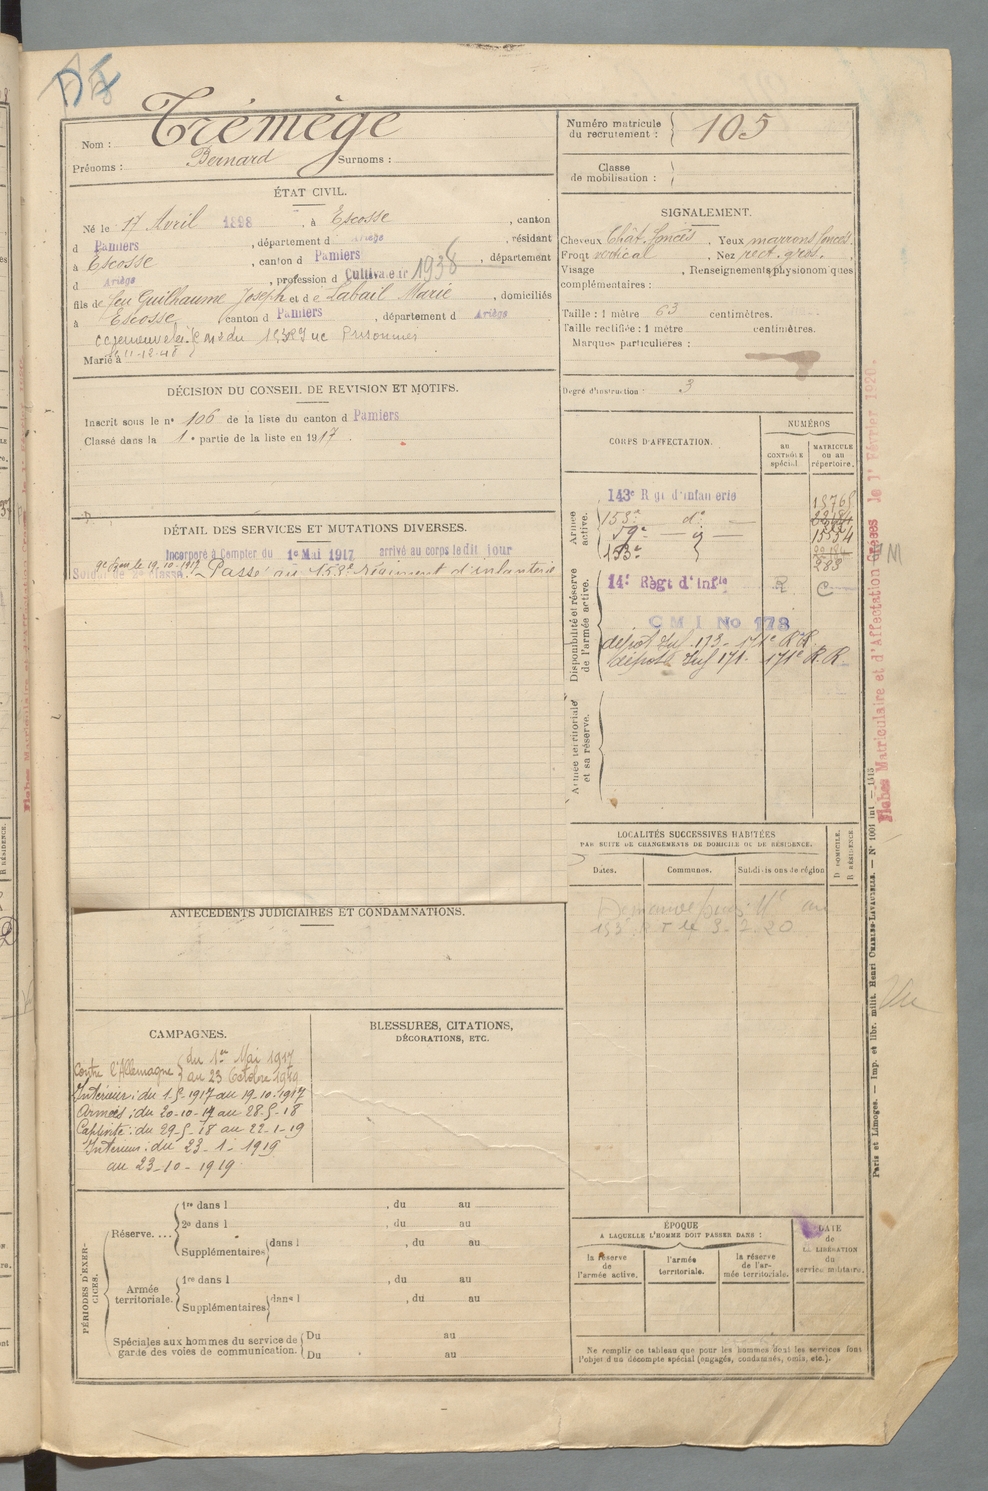 Nom : Trémège
Prénoms : Bernard Surnoms :
Numéro matricule du recrutement : 105
Classe de mobilisation :
ÉTAT CIVIL.
Né le 17 Avril 1898, à Escosse, canton
d Pamiers, département d Ariège, résidant
à Escosse, canton d Pamiers, département
d Ariège, profession d Cultivateur 1938
fils de feu Guilhaume Joseph et de Labail Marie, domiciliés
à Escosse canton d Pamiers, département d Ariège
Prisonnier
Marié à
SIGNALEMENT.
Cheveux Chât. foncés. Yeux marrons foncés.
Front vertical. Nez rect. gros.
Visage , Renseignements physionomiques
complémentaires :
Taille : 1 mètre 63 centimètres.
Taille rectifiée : 1 mètre centimètres.
Marques particulières :
Degré d'instruction : 3
DÉCISION DU CONSEIL DE REVISION ET MOTIFS.
Inscrit sous le nº 106 de la liste du canton d Pamiers
Classé dans la 1e partie de la liste en 1917.
DÉTAIL DES SERVICES ET MUTATIONS DIVERSES.
Incorporé à compter du 1er Mai 1917 arrivé au corps ledit jour
Soldat de 2e classe. Passé au 153e régiment d'infanterie
le 19.10.1917
CORPS D'AFFECTATION.
NUMÉROS
AU CONTRÔLE spécial.
MATRICULE ou au répertoire.
Armée active.
143e Rgt d'infanterie
153e dº
59e
15554
153e
283
Disponibilité et réserve de l'armée active.
14e Règt d'Infie
C M I No 173
dépôt Inf. 173 - 171e R.R.
dépôt Inf 171 - 171e R.R.
Armée territoriale et sa réserve.
LOCALITÉS SUCCESSIVES HABITÉES
PAR SUITE DE CHANGEMENTS DE DOMICILE OU DE RÉSIDENCE.
D DOMICILE.
R RÉSIDENCE
Dates. Communes. Subdivisions de région
au
153 R I le 3-2-20
ANTÉCÉDENTS JUDICIAIRES ET CONDAMNATIONS.
CAMPAGNES.
Contre l'Allemagne du 1er Mai 1917
au 23 Octobre 1919
Intérieur : du 1.5.1917 au 19.10.1917
Armées : du 20-10-17 au 28-5-18
Captivité : du 29-5-18 au 22-1-19
Intérieur : du 23-1-1919
au 23-10-1919
BLESSURES, CITATIONS, DÉCORATIONS, ETC.
PÉRIODES D'EXERCICES.
Réserve....
1re dans l , du au
2e dans l , du au
Supplémentaires dans l , du au
Armée territoriale.
1re dans l , du au
Supplémentaires dans l , du au
Spéciales aux hommes du service de garde des voies de communication.
Du au
Du au
ÉPOQUE
A LAQUELLE L'HOMME DOIT PASSER DANS :
la réserve de l'armée active.
l'armée territoriale.
la réserve de l'armée territoriale.
DATE de LA LIBÉRATION du service militaire.
Ne remplir ce tableau que pour les hommes dont les services font
l'objet d'un décompte spécial (engagés, condamnés, omis, etc.).
Fiches Matriculaire et d'Affectation Créées le 1r Février 1920.
Paris et Limoges. — Imp. et libr. milit. Henri CHARLES-LAVAUZELLE. — Nº 1001 int — 1915
Vu